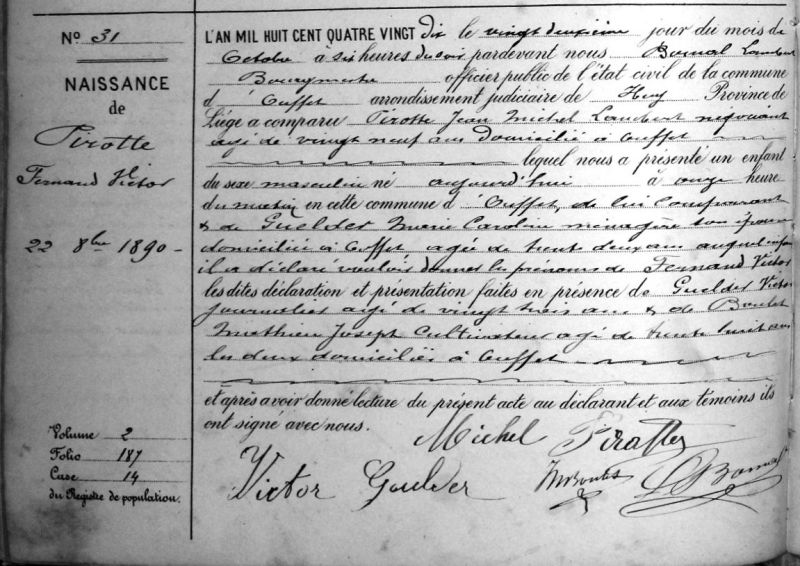 N° 31
NAISSANCE
de
Pirotte
Fernand Victor
22 8bre 1890 -
Volume 2
Folio 187
Case 14
du Registre de population.
L'AN MIL HUIT CENT QUATRE VINGT dix le vingt deuxième jour du mois de
Octobre à six heures du soir pardevant nous Bomal Lambert
Bourgmestre officier public de l'état civil de la commune
d' Ouffet arrondissement judiciaire de Huy Province de
Liége a comparu Pirotte Jean Michel Lambert négociant
agé de vingt neuf ans domicilié à Ouffet
lequel nous a présenté un enfant
du sexe masculin né aujourd'hui à onze heure
du matin en cette commune d' Ouffet, de lui comparant
& de Guelder Marie Caroline ménagère son épouse
domiciliée à Ouffet agée de trente deux ans auquel enfant
il a déclaré vouloir donner les prénoms de Fernand Victor
les dites déclaration et présentation faites en présence de Guelder Victor
journalier agé de vingt trois ans & de Boulet
Mathieu Joseph cultivateur agé de trente huit ans
les deux domiciliés à Ouffet
et après avoir donné lecture du présent acte au déclarant et aux témoins ils
ont signé avec nous.
Michel Pirotte
Victor Guelder
L Bomal